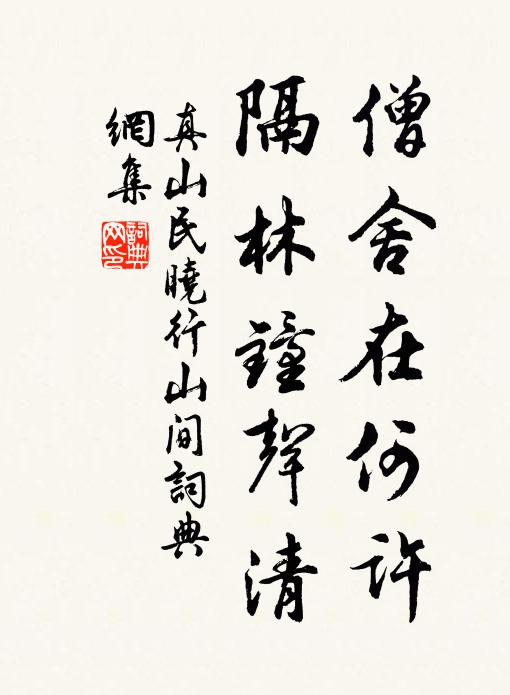 僧舍在何許
隔林鐘聲清
真山民曉行山间詞典
網集
詞典
网印